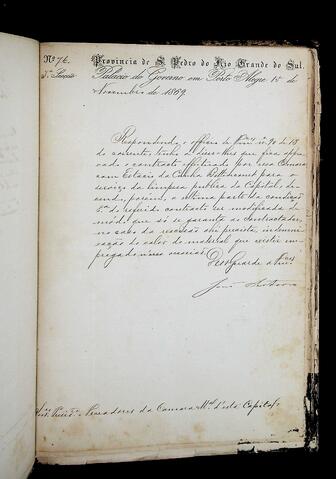 Nº 76.
Provincia de S. Pedro do Rio Grande do Sul.
Palacio do Governo em Porto Alegre 15 de
Novembro de 1869.
Respondendo o officio de nº 90 de 13
do corrente, tenho a dizer-lhes que fica appro-
vado o contracto effectuado por essa Camara
com Estacio da Cunha Bittencourt para o
serviço da limpeza publica da Capital, de-
vendo, porem, a ultima parte da condição
6ª do referido contracto ser modificada de
modo que só se garanta ao contractador,
no caso da rescisão ali prevista, indemni-
sação do valor do material que existir em-
pregado n'esse
Deos Guarde a
Vereadores da Camara Mal d'esta Capital